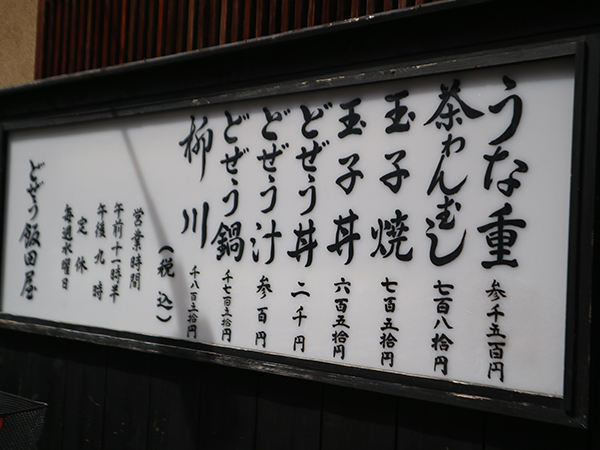 うな重 参千五百円
茶わんむし 七百八十円
玉子焼 七百五拾円
玉子丼 六百五拾円
どぜう丼 二千円
どぜう汁 参百円
どぜう鍋 千七百五拾円
柳川 千八百五拾円
(税込)
営業時間
午前十一時半
午後九時
定休
毎週水曜日
どぜう飯田屋